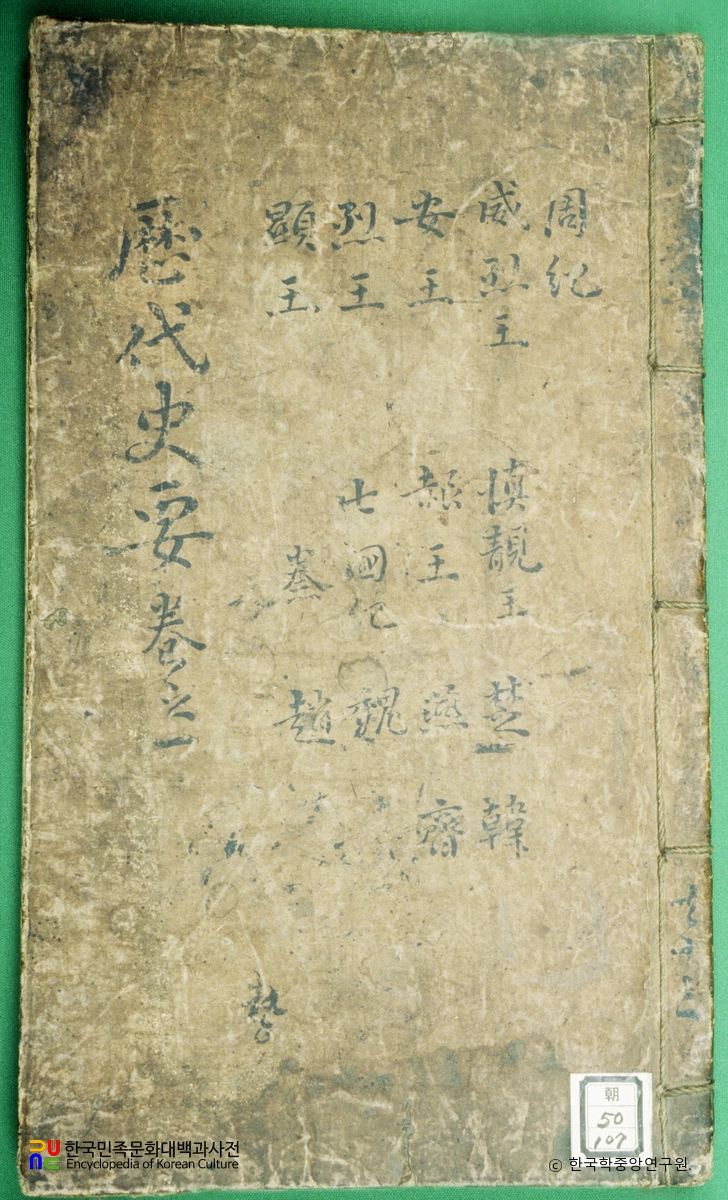 周紀
威烈王
安王
烈王
顯王
愼靚王
赧王
七國紀
秦
楚
燕
魏
趙
韓
齊
歷代史要卷之一
朝
50
107
한국민족문화대백과사전
Encyclopedia of Korean Culture
© 한국학중앙연구원.